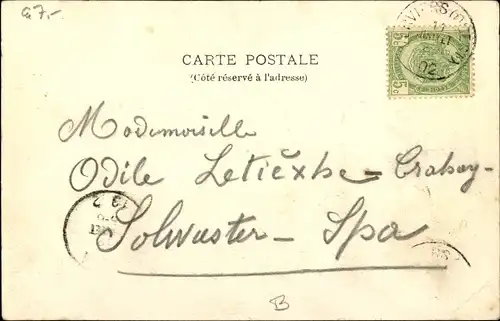 G7.-
CARTE POSTALE
(Côté réservé à l'adresse)
5c 5c
02
Mademoiselle
Odile Letiéxhe-Crahay-
Solwaster- Spa
B